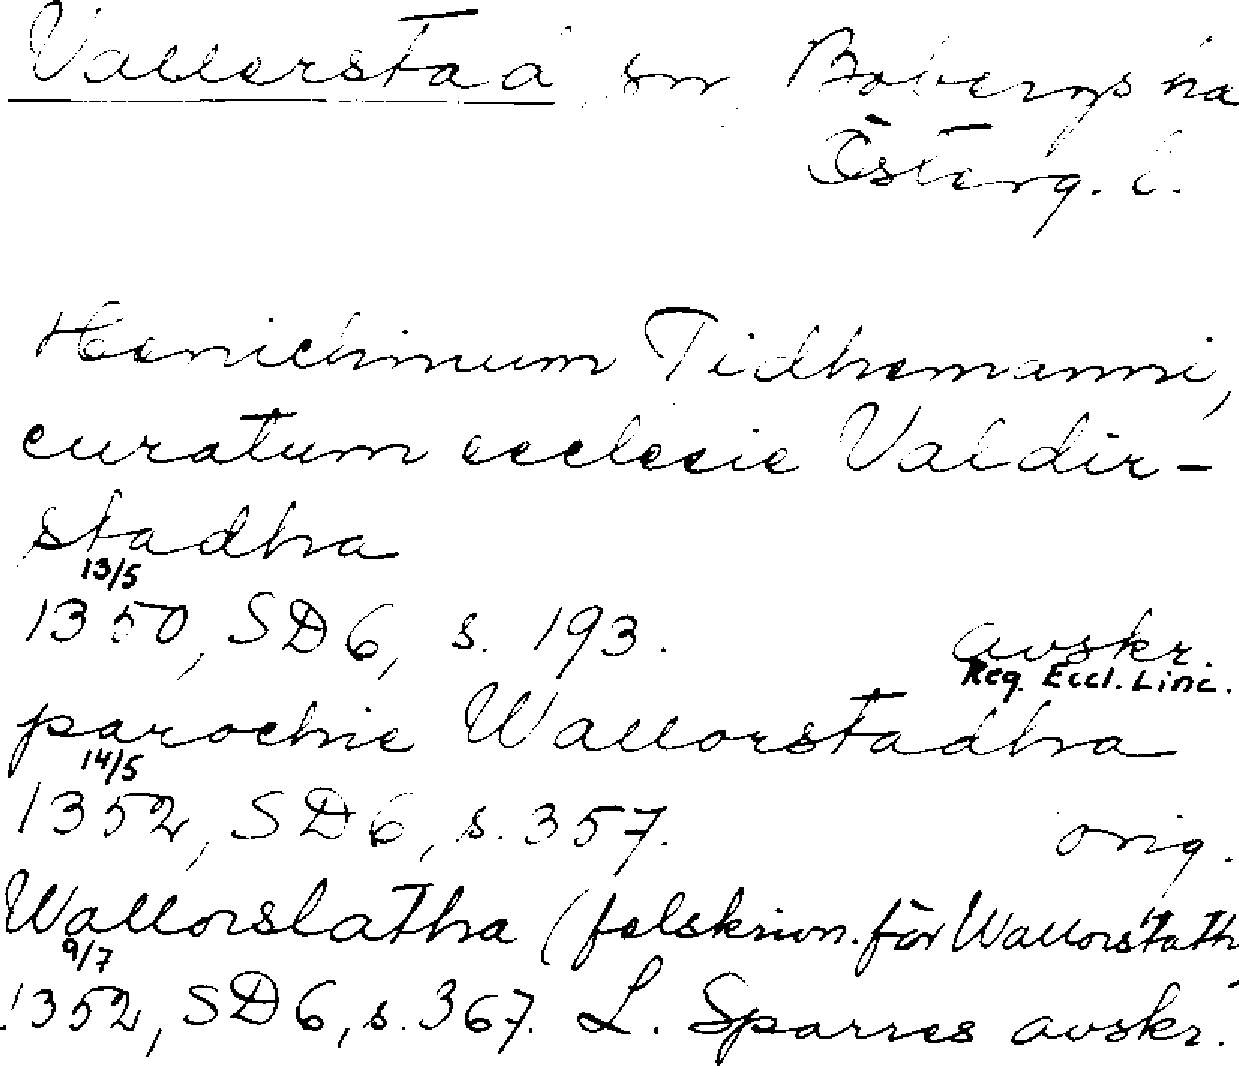 Vallerstad sn Bobergs hd
Österg. l.
Henichinum Tidhemanni,
curatum ecclesie Valdir-
stadha
13/5
1350, SD 6, s. 193. avskr.
Reg. Eccl. Linc.
parochie Wallorstadha
14/5
1352, SD 6, s. 357. orig.
Wallorslatha (felskrivn. för Wallorstath
9/7
1352, SD 6, s. 367. L. Sparres avskr.